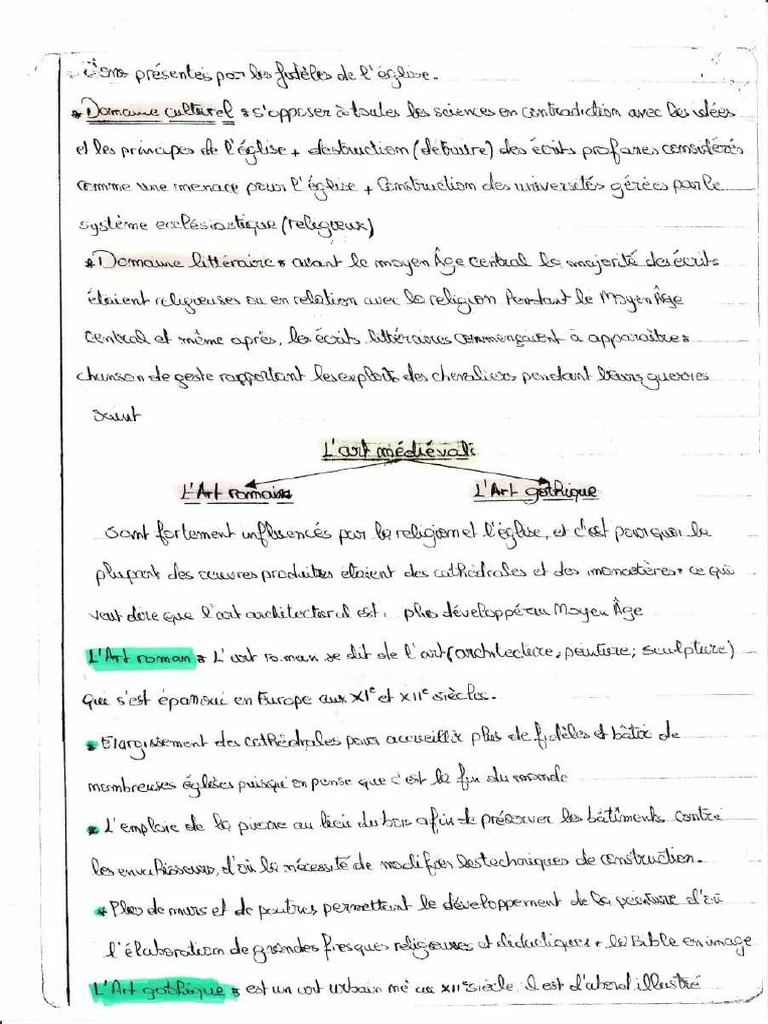 Dons présentés par les fidèles de l'église.
* Domaine culturel : s'opposer à toutes les sciences en contradiction avec les idées
et les principes de l'église + destruction (détruire) des écrits profanes considérés
comme une menace pour l'église + Construction des universités gérées par le
système ecclésiastique (religieux)
* Domaine littéraire : avant le moyen Âge central la majorité des écrits
étaient religieuses ou en relation avec la religion. Pendant le Moyen Âge
central et même après, les écrits littéraires commençaient à apparaître :
chanson de geste rapportant les exploits des chevaliers pendant leurs guerres
saint
L'art médiéval :
L'Art romain L'Art gothique
Sont fortement influencés par la religion et l'église, et c'est pourquoi la
plupart des œuvres produites étaient des cathédrales et des monastères. ce qui
veut dire que l'art architectural est plus développé au Moyen Âge
L'Art roman : L'art roman se dit de l'art (architecture, peinture, sculpture)
Qui s'est épanoui en Europe aux XIe et XIIe siècles.
* Elargissement des cathédrales pour accueillir plus de fidèles et bâtir de
nombreuses églises puisqu'on pense que c'est la fin du monde
* L'emploie de la pierre au lieu du bois afin de préserver les bâtiments contre
les envahisseurs, d'où la nécessité de modifier les techniques de construction.
* Plus de murs et de poutres permettant le développement de la peinture d'où
l'élaboration de grandes fresques religieuses et didactiques : la Bible en image
L'Art gothique : est un art urbain né au XIIe siècle. Il est d'abord illustré